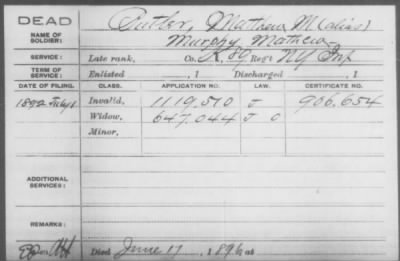 DEAD
Butler, Matthew M (alias)
NAME OF SOLDIER: Murphy, Mathew
SERVICE: Late rank, Co. K, 89 Reg't NY Inf
TERM OF SERVICE: Enlisted , 1 Discharged , 1
DATE OF FILING. CLASS. APPLICATION NO. LAW. CERTIFICATE NO.
1892 July 1 Invalid, 1119,510 J 906,654
Widow, 647,044 J O
Minor,
ADDITIONAL SERVICES:
REMARKS:
Died June 17, 1896 at